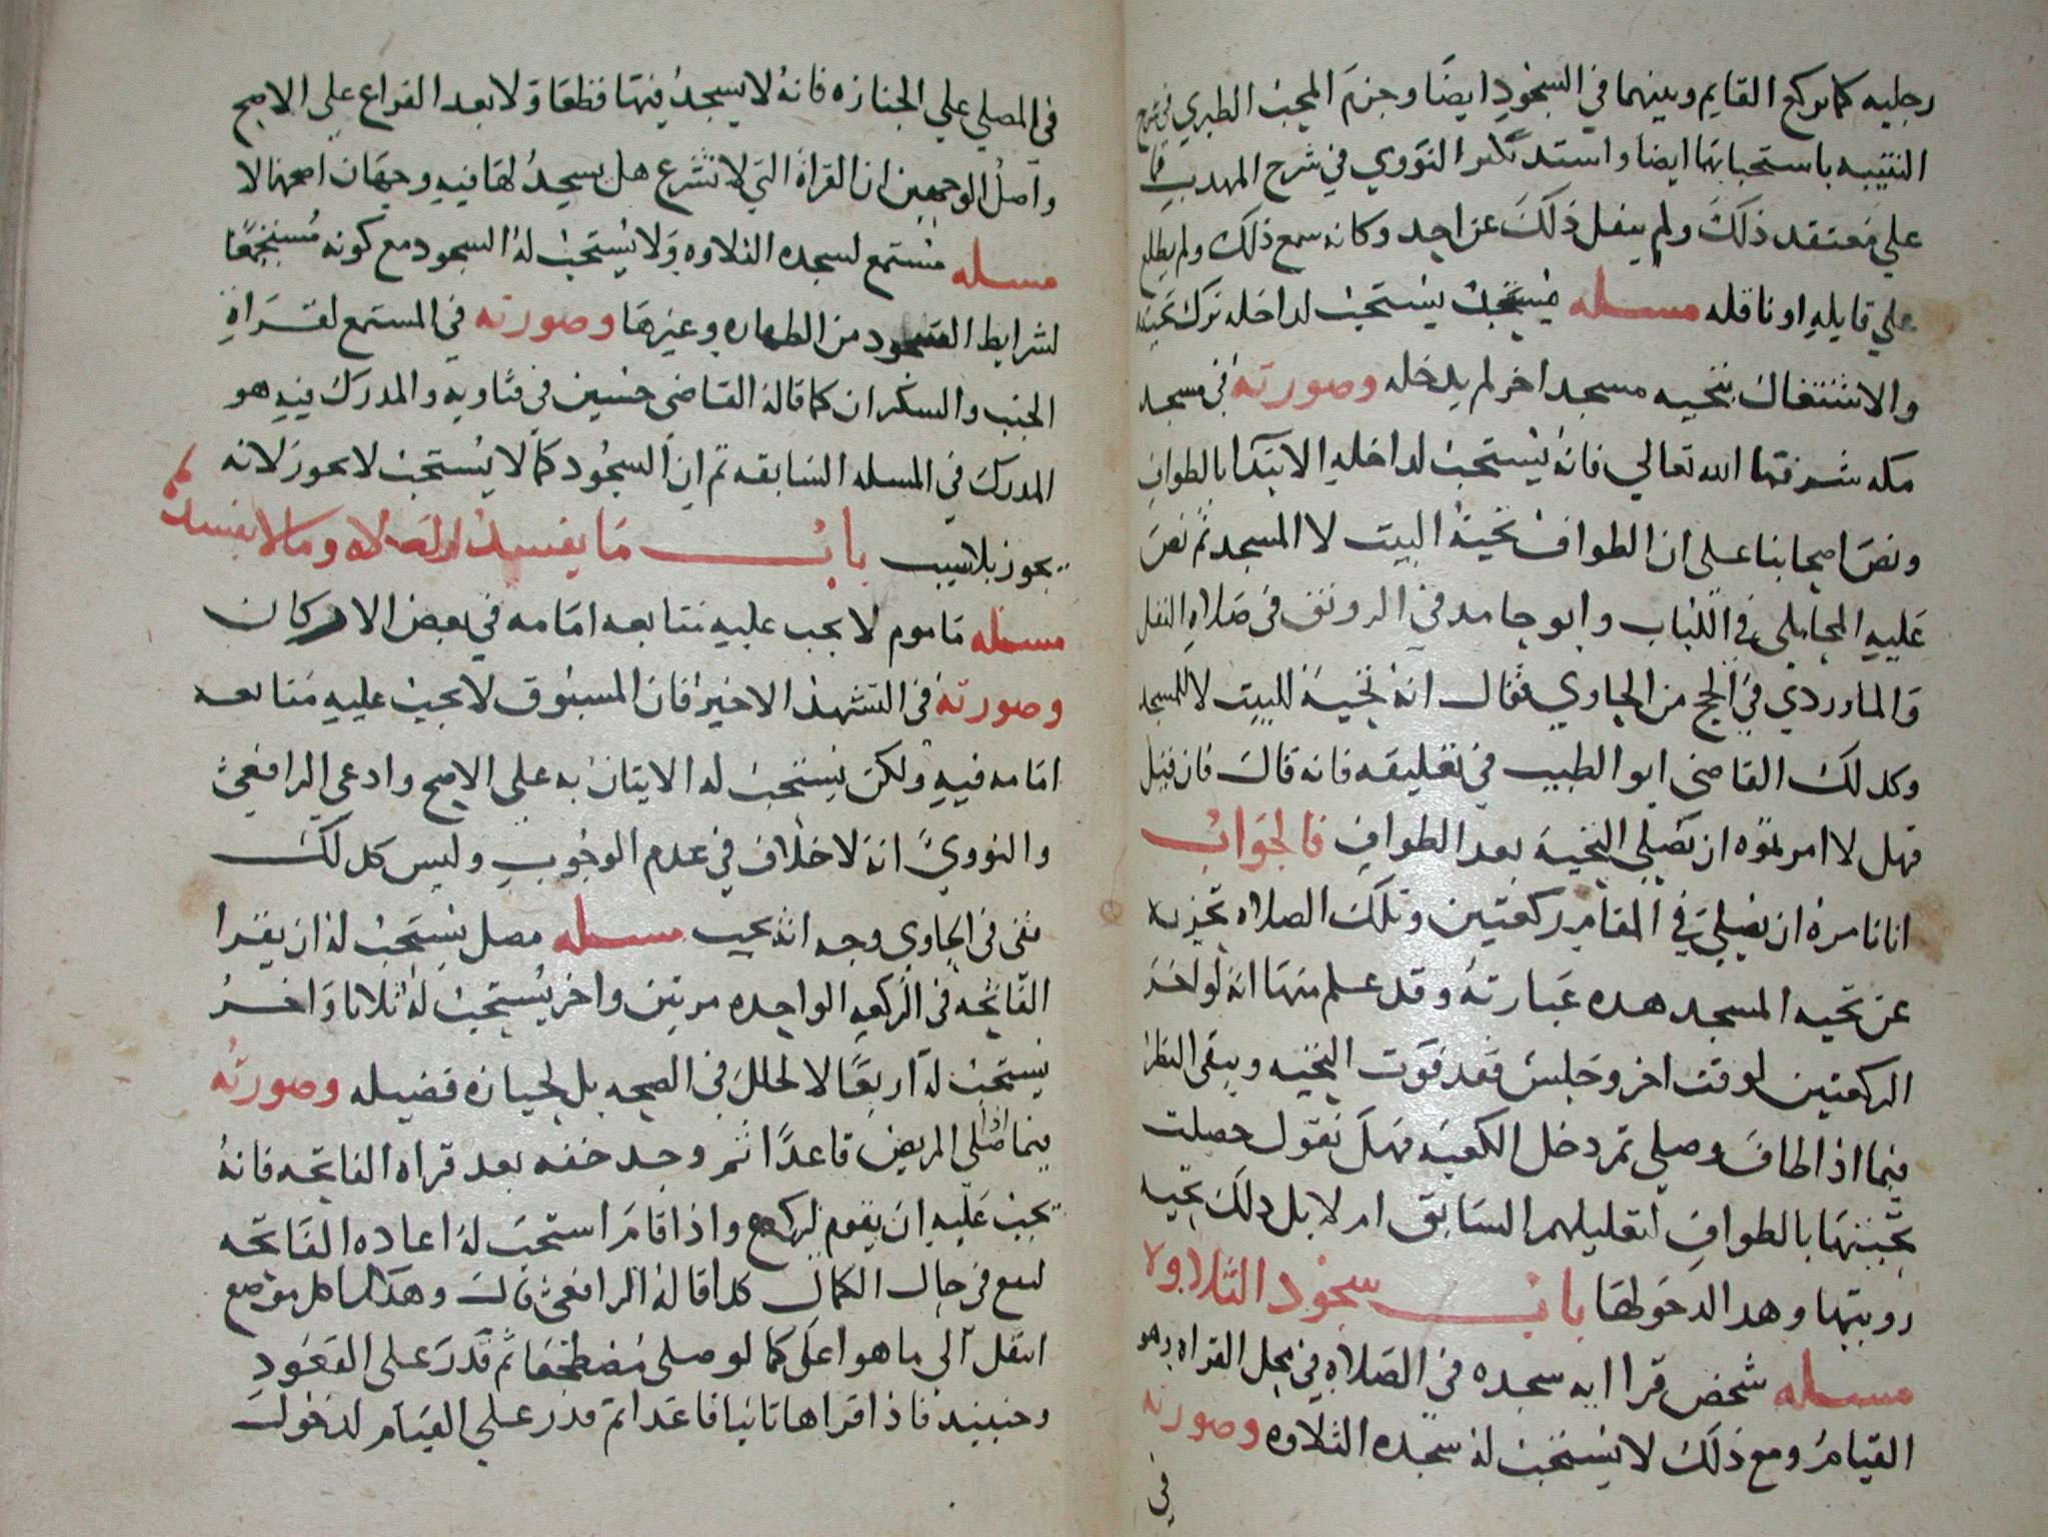 رجليه كما يركع القايم وبينهما في السجود ايضا وجزم المحب الطبري في شرح
التنبيه باستحبابها ايضا واستدرك النووي في شرح المهذب
علي معتقد ذلك ولم ينقل ذلك عن احد وكانه سمع ذلك ولم يطلع
علي قايله او ناقله مسله مسجد يستحب لداخله ترك تحيته
والاشتغال بتحيه مسجد اخر لم يدخله وصورته في مسجد
مكه شرفها الله تعالي فانه يستحب لداخله الابتدا بالطواف
ونص اصحابنا على ان الطواف تحية البيت لا المسجد ثم نص
عليه المحاملي في اللباب وابو حامد في الرونق في صلاه النفل
والماوردي في الحج من الحاوي فقال انه تحية للبيت لا للمسجد
وكذلك القاضي ابو الطيب في تعليقه فانه قال فان قيل
فهل لا امرتموه ان يصلي التحية بعد الطواف فالجواب
انا نامره ان يصلي في المقام ركعتين وتلك الصلاه تجزيه
عن تحيه المسجد هذه عبارته وقد علم منها انه لو اخذ
الركعتين لوقت اخر وجلس فقد فوت التحيه ويبقى النظر
فيما اذا طاف وصلى ثم دخل الكعبه فهل نقول حصلت
تحيتها بالطواف السابق ام لا بل ذلك تحيه
رويتها وهذا لدخولها باب سجود التلاوة
مسله شخص قرا ايه سجده في الصلاه في محل القراه وهو
القيام ومع ذلك لا يستحب له سجده التلاوه وصورته
في
في المصلي علي الجنازه فانه لا يسجد فيها قطعا ولا بعد الفراغ على الاصح
واصل الوجهين ان القراة التي لا تشرع هل يسجد لها فيه وجهان اصحهما لا
مسله مستمع لسجده التلاوه ولا يستحب له السجود مع كونه مستجمعا
لشرايط السجود من الطهاره وغيرها وصورته في المستمع لقراة
الجنب والسكران كما قاله القاضي حسين في فتاويه والمدرك فيه هو
المدرك في المسله السابقه ثم ان السجود كما لا يستحب لا يجوز لانه
يجوز بلا سبب باب ما يفسد الصلاه وما لا يفسدها
مسله ماموم لا يجب عليه متابعه امامه في بعض الاركان
وصورته في التشهد الاخير فان المسبوق لا يجب عليه متابعه
امامه فيه ولكن يستحب له الاتيان به علي الاصح وادعي الرافعي
والنووي انه لا خلاف في عدم الوجوب وليس كذلك
ففي الحاوي وجه انه يجب مسله مصل يستحب له ان يقرا
الفاتحه في الركعه الواحده مرتين واخر يستحب له ثلاثا واخر
يستحب له اربعا لا لخلل في الصحه بل لحيازه فضيله وصورته
فيما اذا صلى المريض قاعدا ثم وجد خفه بعد قراه الفاتحه فانه
يجب عليه ان يقوم ليركع واذا قام استحب له اعاده الفاتحه
لتقع في حال الكمال كذا قاله الرافعي قال وهكذا كل موضع
انتقل الى ما هو اعلى كما لو صلى مضطجعا ثم قدر على القعود
وحينيذ فاذا قراها ثانيا قاعدا ثم قدر علي القيام لدخول